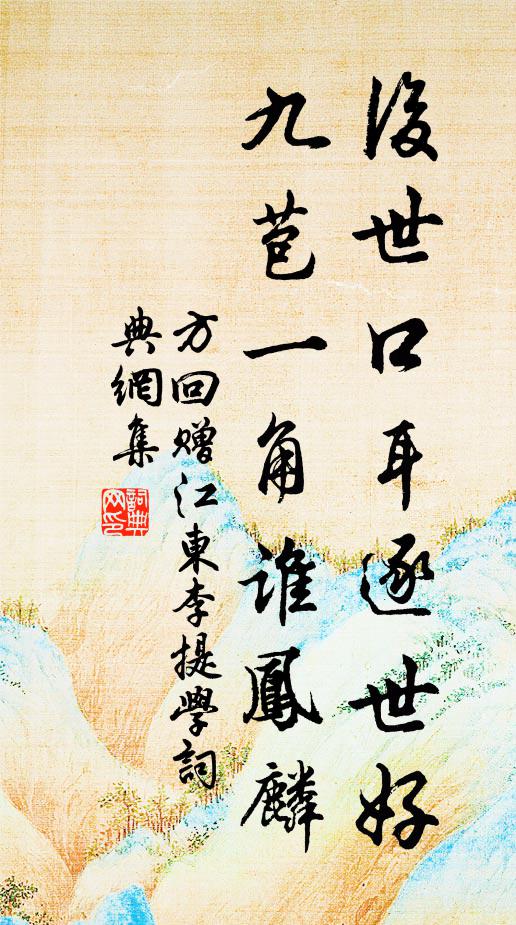 後世口耳逐世好
九苞一角誰鳳麟
方回贈江東李提學詞
典網集
詞典網印